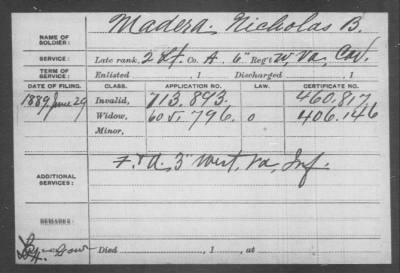 NAME OF SOLDIER: Madera, Nicholas B.
SERVICE: Late rank, 2 Lt. Co. A, 6" Reg't W. Va. Cav.
TERM OF SERVICE: Enlisted , 1 Discharged , 1
DATE OF FILING. CLASS. APPLICATION NO. LAW. CERTIFICATE NO.
1889 June 29 Invalid, 713.893. 460.817
Widow, 796. 0 406.146
Minor,
ADDITIONAL SERVICES: A. 3" West. Va. Inf.
REMARKS:
Died , 1 , at